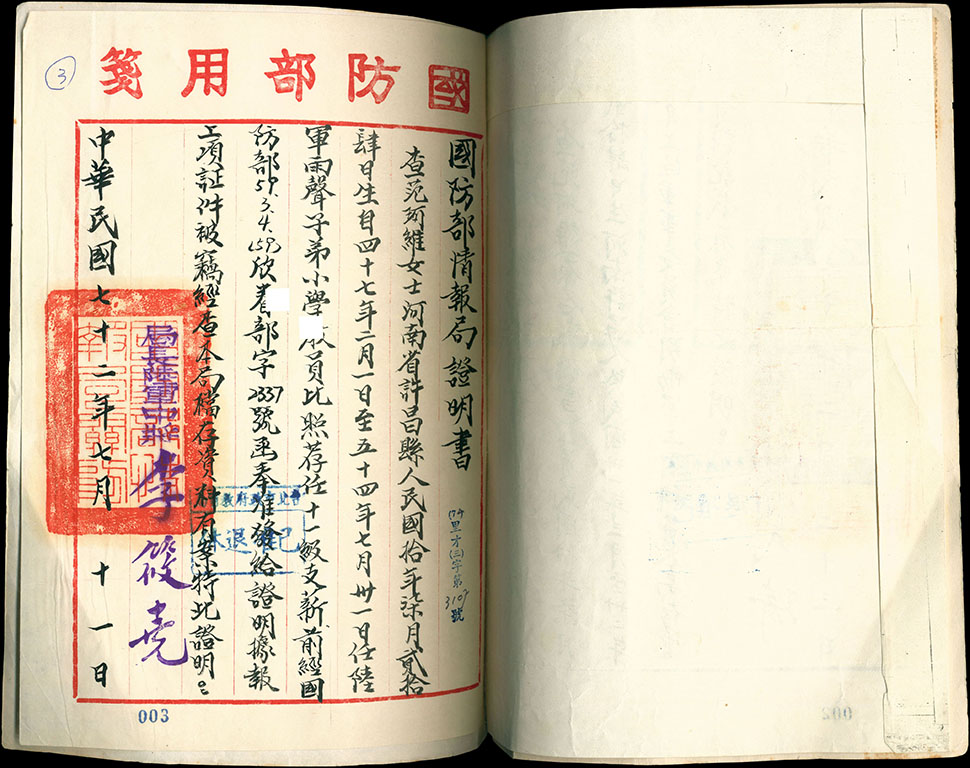 國防部用箋
3
國防部情報局證明書
(72)里才(三)字第3109號
查范珂維女士河南省許昌縣人民國拾年柒月貳拾
肆日生自四十七年二月一日至五十四年七月卅一日任陸
軍雨聲子弟小學 教員比照荐任十一級支薪前經國
防部59.3.4.(59)欣養部字2337號函奉准發給證明據報
上項証件被竊經查本局檔存資料有案特此證明。
局長陸軍中將李筱堯
中華民國七十二年七月十一日
003
002